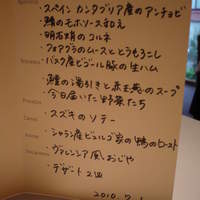 ・スペイン カンタブリア産のアンチョビ
・鱧のモホソース和え
・明石蛸のコルネ
・フォアグラのムースととうもろこし
・バスク産ビゴール豚の生ハム
・鱧の湯引きと
のスープ
・今日届いた野菜たち
・スズキのソテー
・シャラン産ビュルゴ家の鴨のロースト
・ヴァレンシア風おじや
・デザート2皿
2010.7.